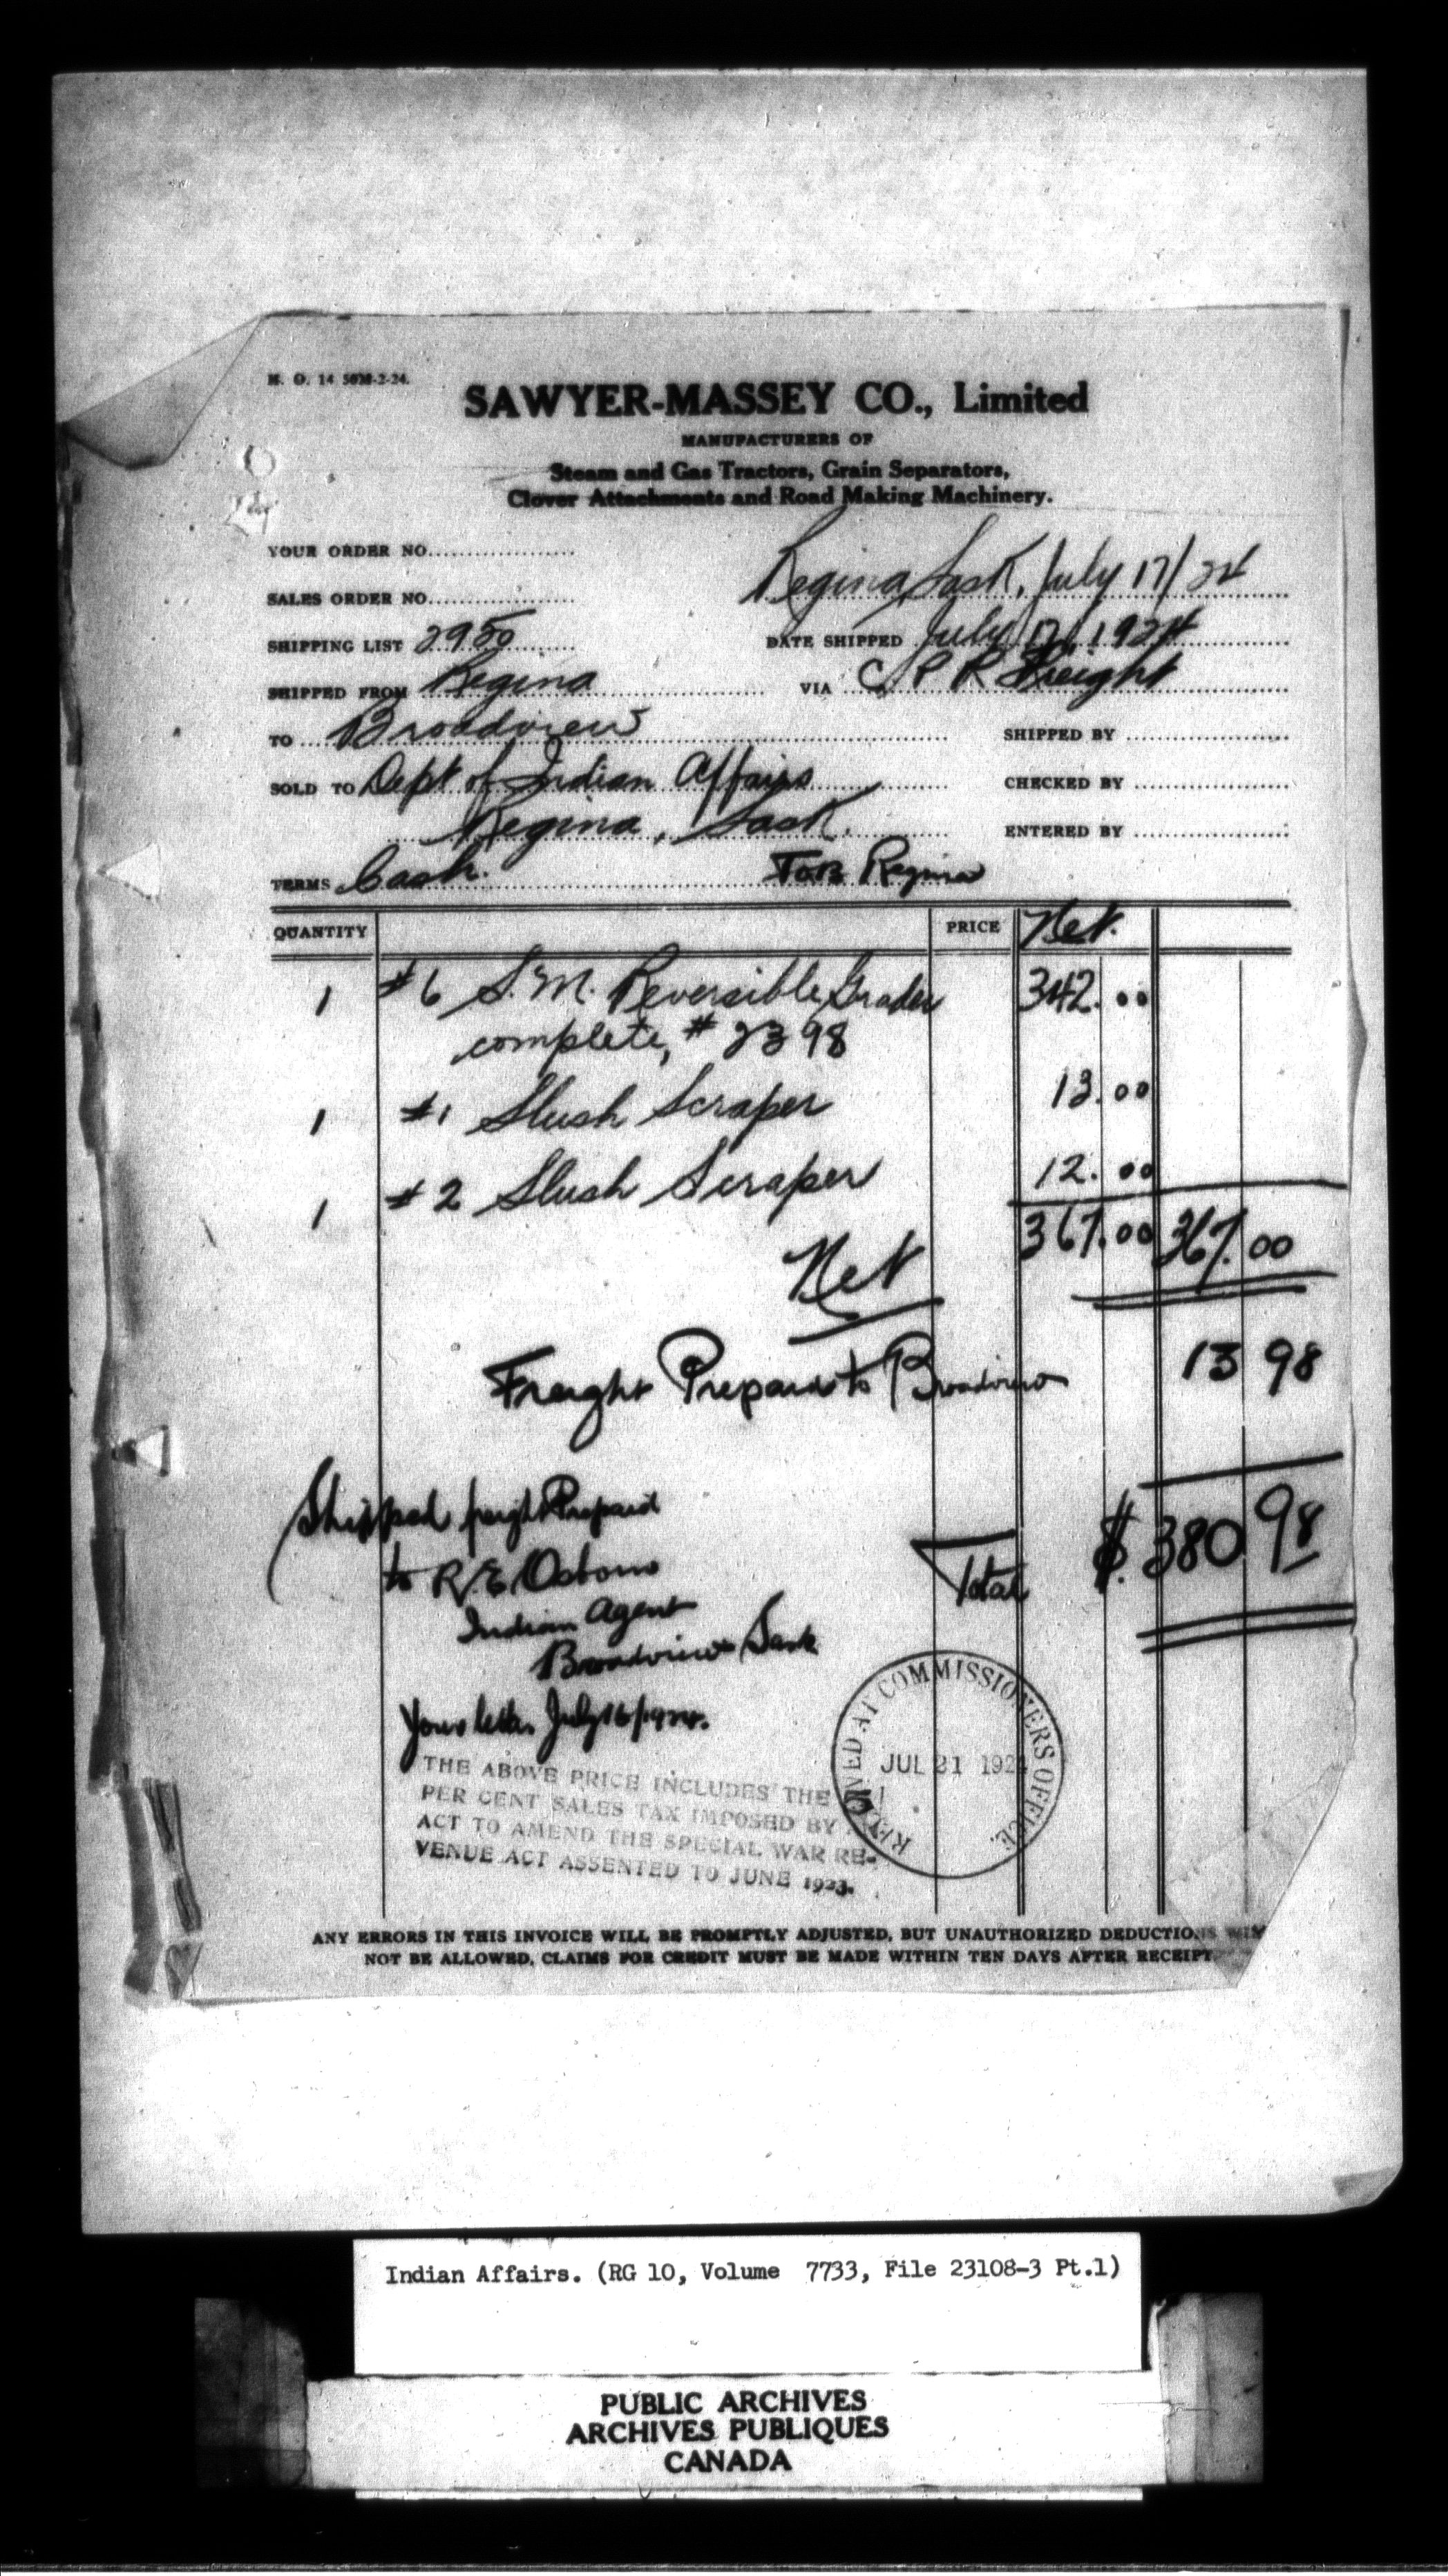 H. O. 14 50M-2-24.
SAWYER-MASSEY CO., Limited
MANUFACTURERS OF
Steam and Gas Tractors, Grain Separators,
Clover Attachments and Road Making Machinery.
YOUR ORDER NO.
Regina, Sask, July 17/24
SALES ORDER NO.
SHIPPING LIST 2950
DATE SHIPPED July 17, 1924
SHIPPED FROM Regina VIA C.P.R Freight
TO Broadview SHIPPED BY
SOLD TO Dept of Indian Affairs CHECKED BY
Regina, Sask. ENTERED BY
TERMS Cash. FOB Regina
QUANTITY PRICE Net.
1 #6 S.M. Reversible Grader 342.00
complete, # 2398
1 #1 Slush Scraper 13.00
1 #2 Slush Scraper 12.00
Net 367.00 367.00
Freight Prepaid to Broadview 13 98
Shipped freight Prepaid
to R.E. Osborne
Total $.380 98
Indian Agent
Broadview Sask
Your letter July 16/1924.
RECEIVED AT COMMISSIONERS OFFICE.
JUL 21 1924
THE ABOVE PRICE INCLUDES THE 5
PER CENT SALES TAX IMPOSED BY
ACT TO AMEND THE SPECIAL WAR RE-
VENUE ACT ASSENTED TO JUNE 1923.
ANY ERRORS IN THIS INVOICE WILL BE PROMPTLY ADJUSTED, BUT UNAUTHORIZED DEDUCTIONS WILL
NOT BE ALLOWED, CLAIMS FOR CREDIT MUST BE MADE WITHIN TEN DAYS AFTER RECEIPT
Indian Affairs. (RG 10, Volume 7733, File 23108-3 Pt.1)
PUBLIC ARCHIVES
ARCHIVES PUBLIQUES
CANADA